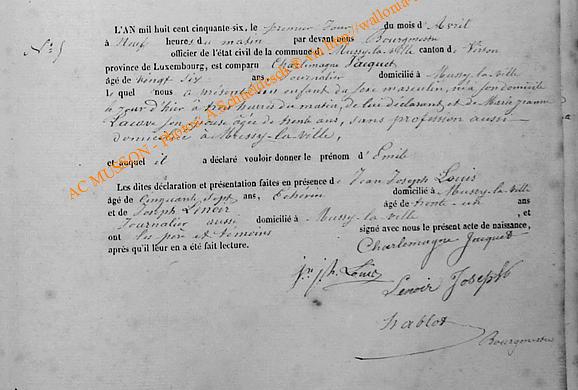 N° 5
L'AN mil huit cent cinquante-six, le premier jour du mois d'Avril
à Neuf heures du matin par devant nous Bourgmestre
officier de l'état civil de la commune de Mussy-la-ville canton de Virton
province de Luxembourg, est comparu Charlemagne Jacquet
âgé de vingt six ans, journalier domicilié à Mussy-la-ville
Lequel nous a présenté un enfant du sexe masculin, né à son domicile
à jour d'hier à trois heures du matin, de lui déclarant et de Marie Jeanne
son épouse âgée de trente ans, sans profession aussi
domiciliée à Mussy-la-ville,
et auquel il a déclaré vouloir donner le prénom d'Emile
Les dites déclaration et présentation faites en présence de Jean Joseph Louis
âgé de Cinquante sept ans, Echevin domicilié à Mussy-la-ville
et de Joseph Lenoir âgé de trente-un ans
Journalier aussi domicilié à Mussy-la-ville, et
ont les père et témoins signé avec nous le présent acte de naissance,
après qu'il leur en a été fait lecture.
Charlemagne Jacquet
jn. j.h. Louis
Lenoir Joseph
Bourgmestre
AC MUSSON - Photos: A.Schmietesck © AH http://wallonia